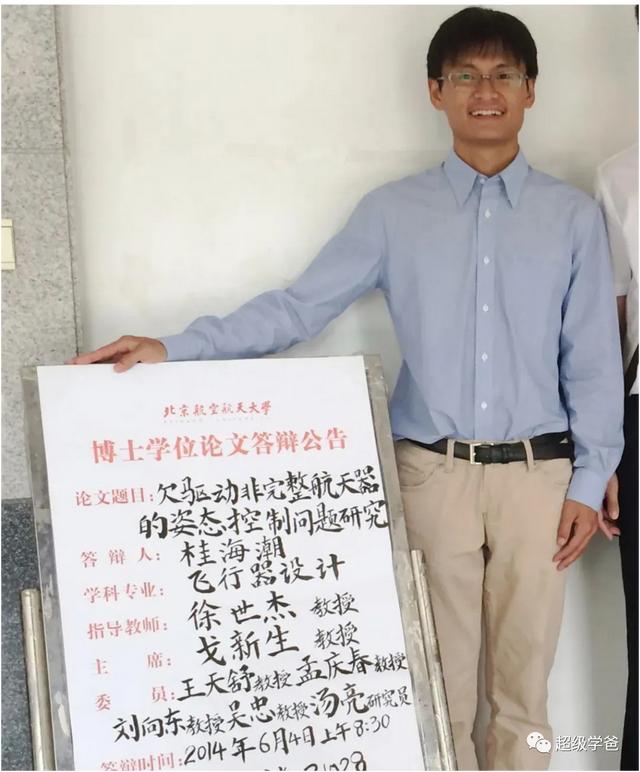 北京航空航天大學
博士学位论文答辩公告
论文题目：欠驱动非完整航天器
的姿态控制问题研究
答辩人：桂海潮
学科专业：飞行器设计
指导教师：徐世杰 教授
主席：戈新生 教授
委员：王天舒教授 孟庆春教授
刘向东教授 吴忠教授 汤亮研究员
答辩时间：2014年6月4日上午8:30
超级学爸